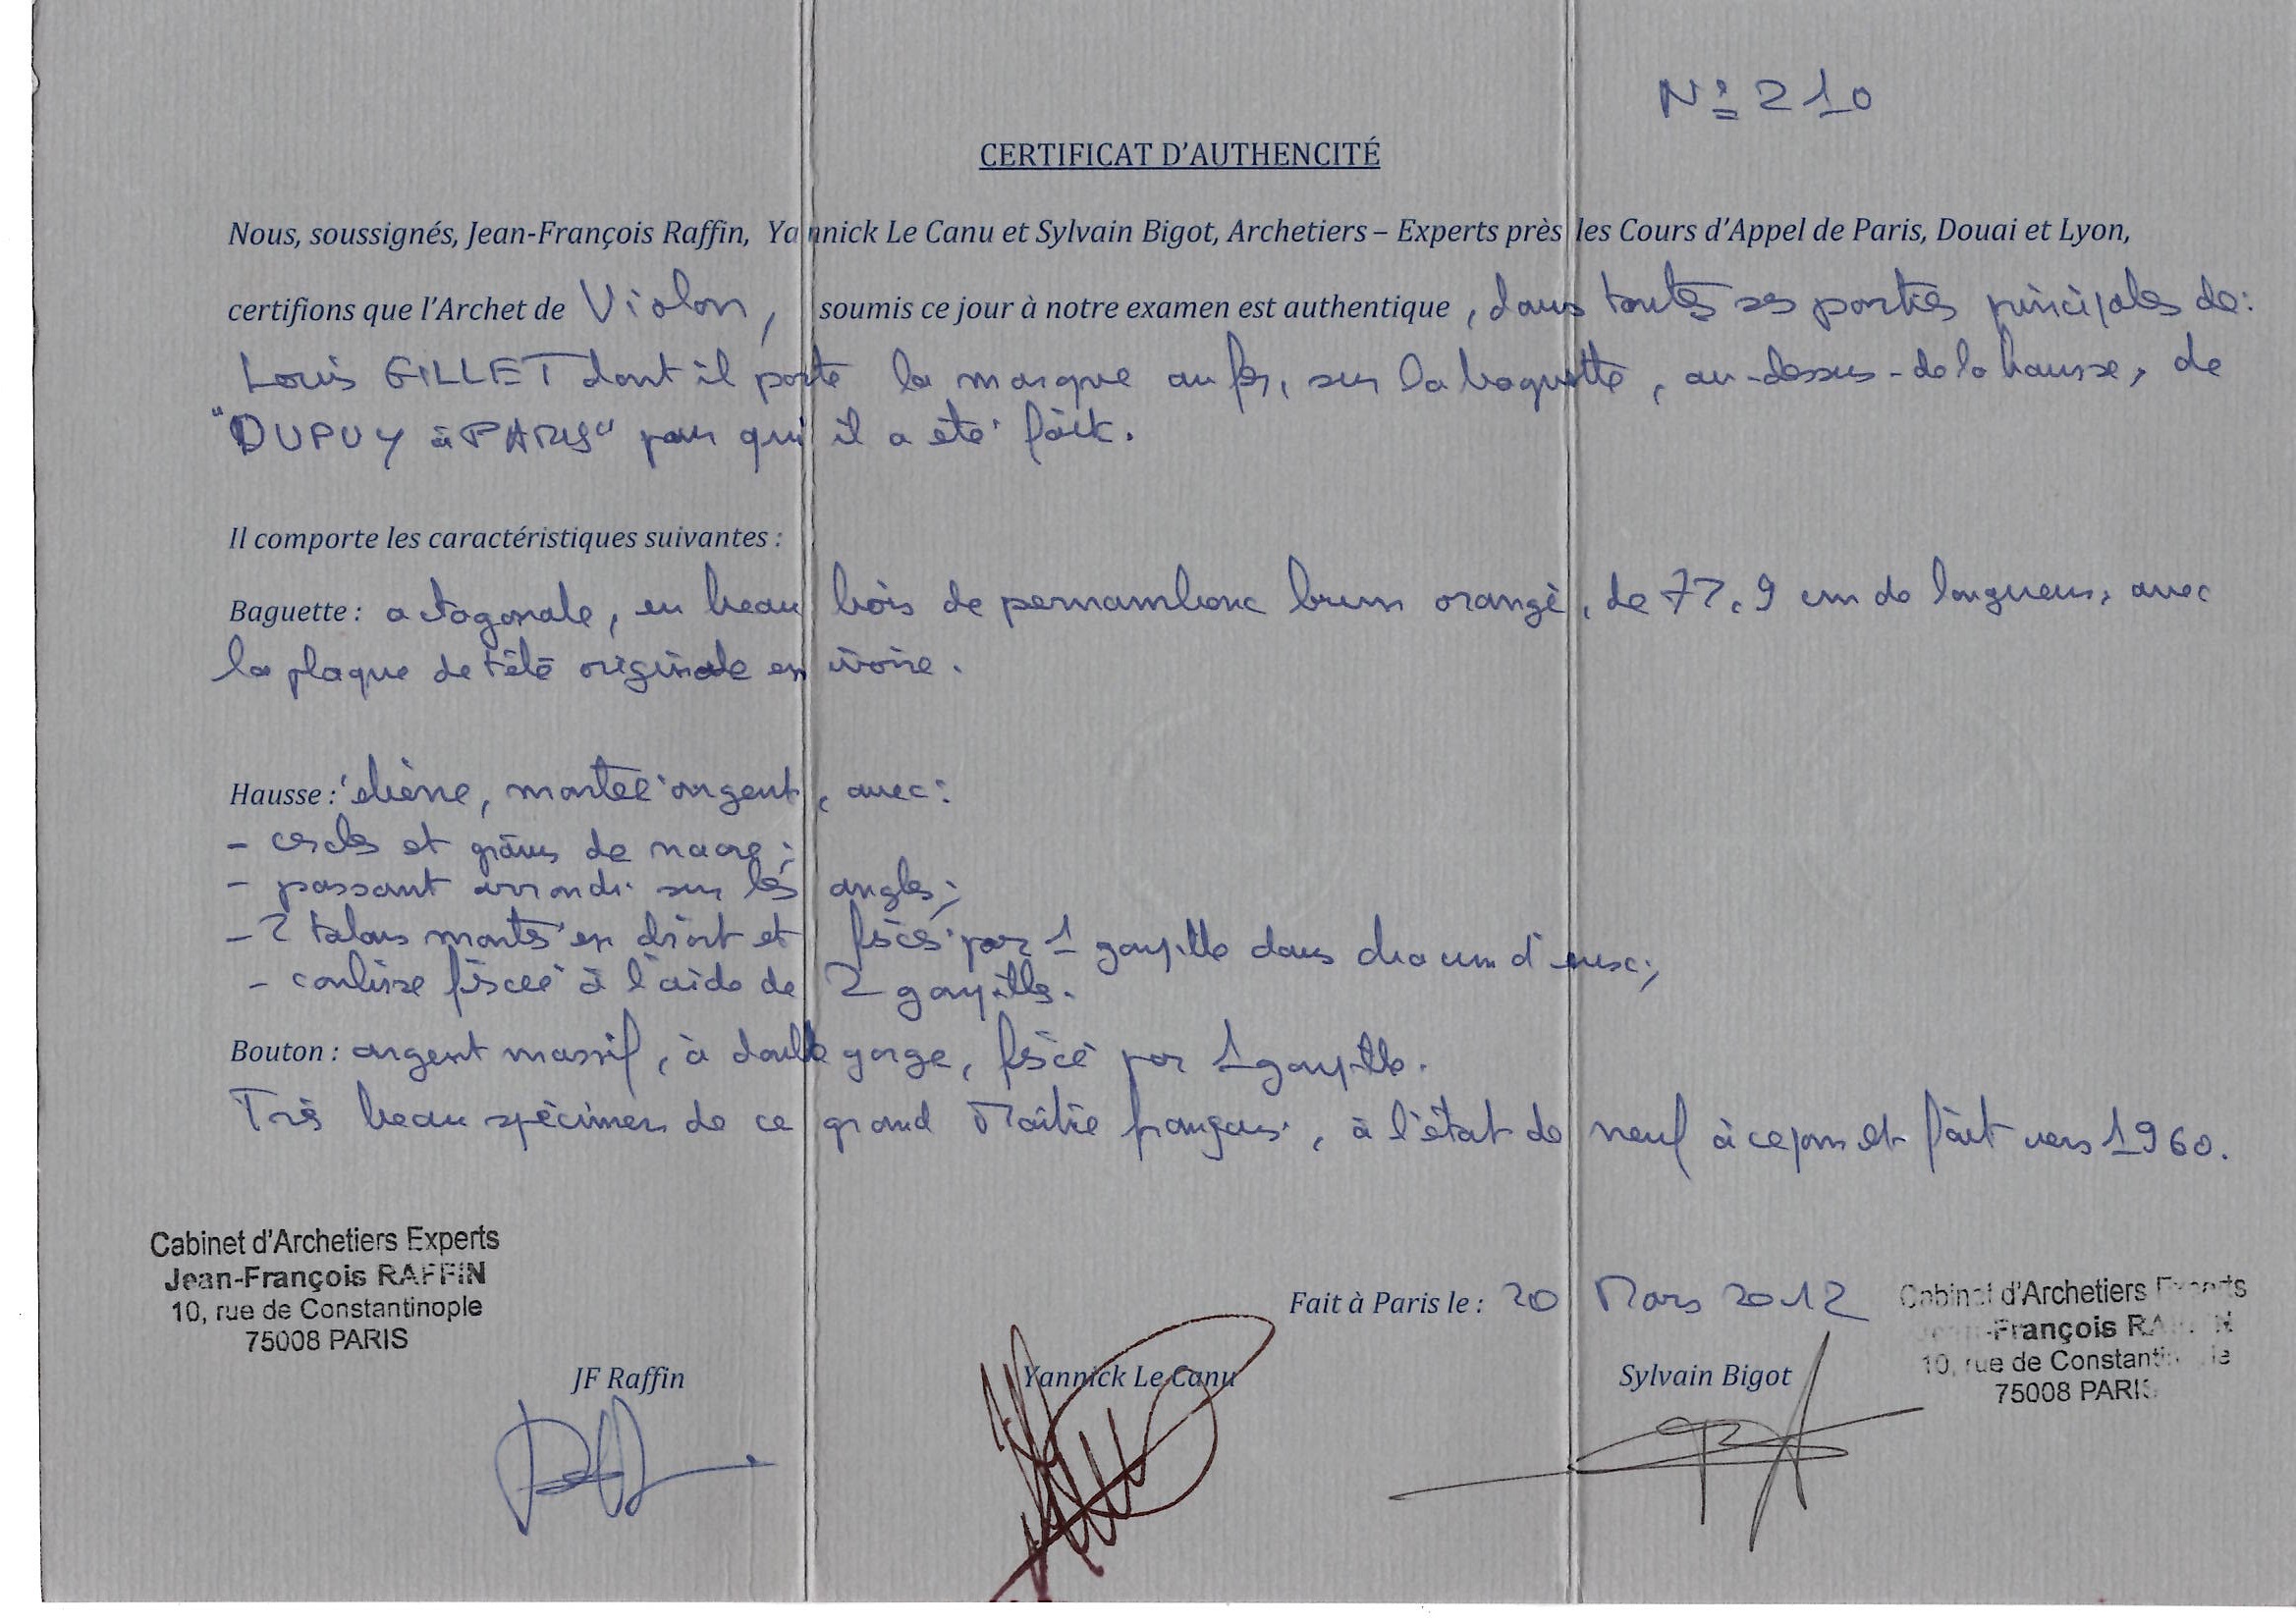 N° 210
CERTIFICAT D'AUTHENCITÉ
Nous, soussignés, Jean-François Raffin, Yannick Le Canu et Sylvain Bigot, Archetiers – Experts près les Cours d'Appel de Paris, Douai et Lyon,
certifions que l'Archet de Violon, soumis ce jour à notre examen est authentique, dans toutes ses parties principales de:
Louis GILLET dont il porte la marque au fer, sur la baguette, au-dessus-de la hausse, de
"DUPUY à PARIS" pour qui il a été fait.
Il comporte les caractéristiques suivantes :
Baguette : octogonale, en beau bois de pernambouc brun orangé, de 72,9 cm de longueur, avec
la plaque de tête originale en ivoire.
Hausse : ébène, montée argent, avec:
- cercles et grains de nacre;
- passant arrondi sur les angles;
- 2 talons montés en droit et fixés par 1 goupille dans chacun d'eux;
- coulisse fixée à l'aide de 2 goupilles.
Bouton : argent massif, à double gorge, fixé par 1 goupille.
Très beau spécimen de ce grand Maître français, à l'état de neuf à ce jour et fait vers 1960.
Cabinet d'Archetiers Experts
Jean-François RAFFIN
10, rue de Constantinople
75008 PARIS
Fait à Paris le : 20 Mars 2012
Cabinet d'Archetiers Experts
Jean-François RAFFIN
10, rue de Constantinople
75008 PARIS
JF Raffin
Yannick Le Canu
Sylvain Bigot